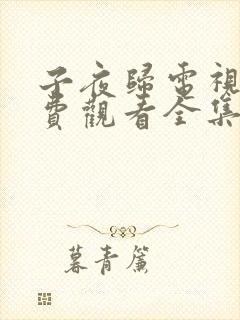 子夜歸電視
費觀看全集
暮青簾